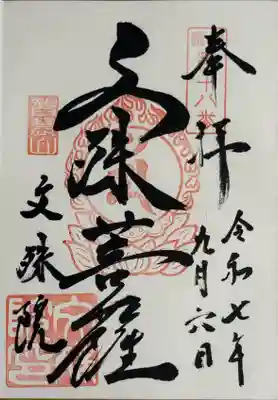 奉拝
令和七年
九月六日
文殊菩薩
文殊院